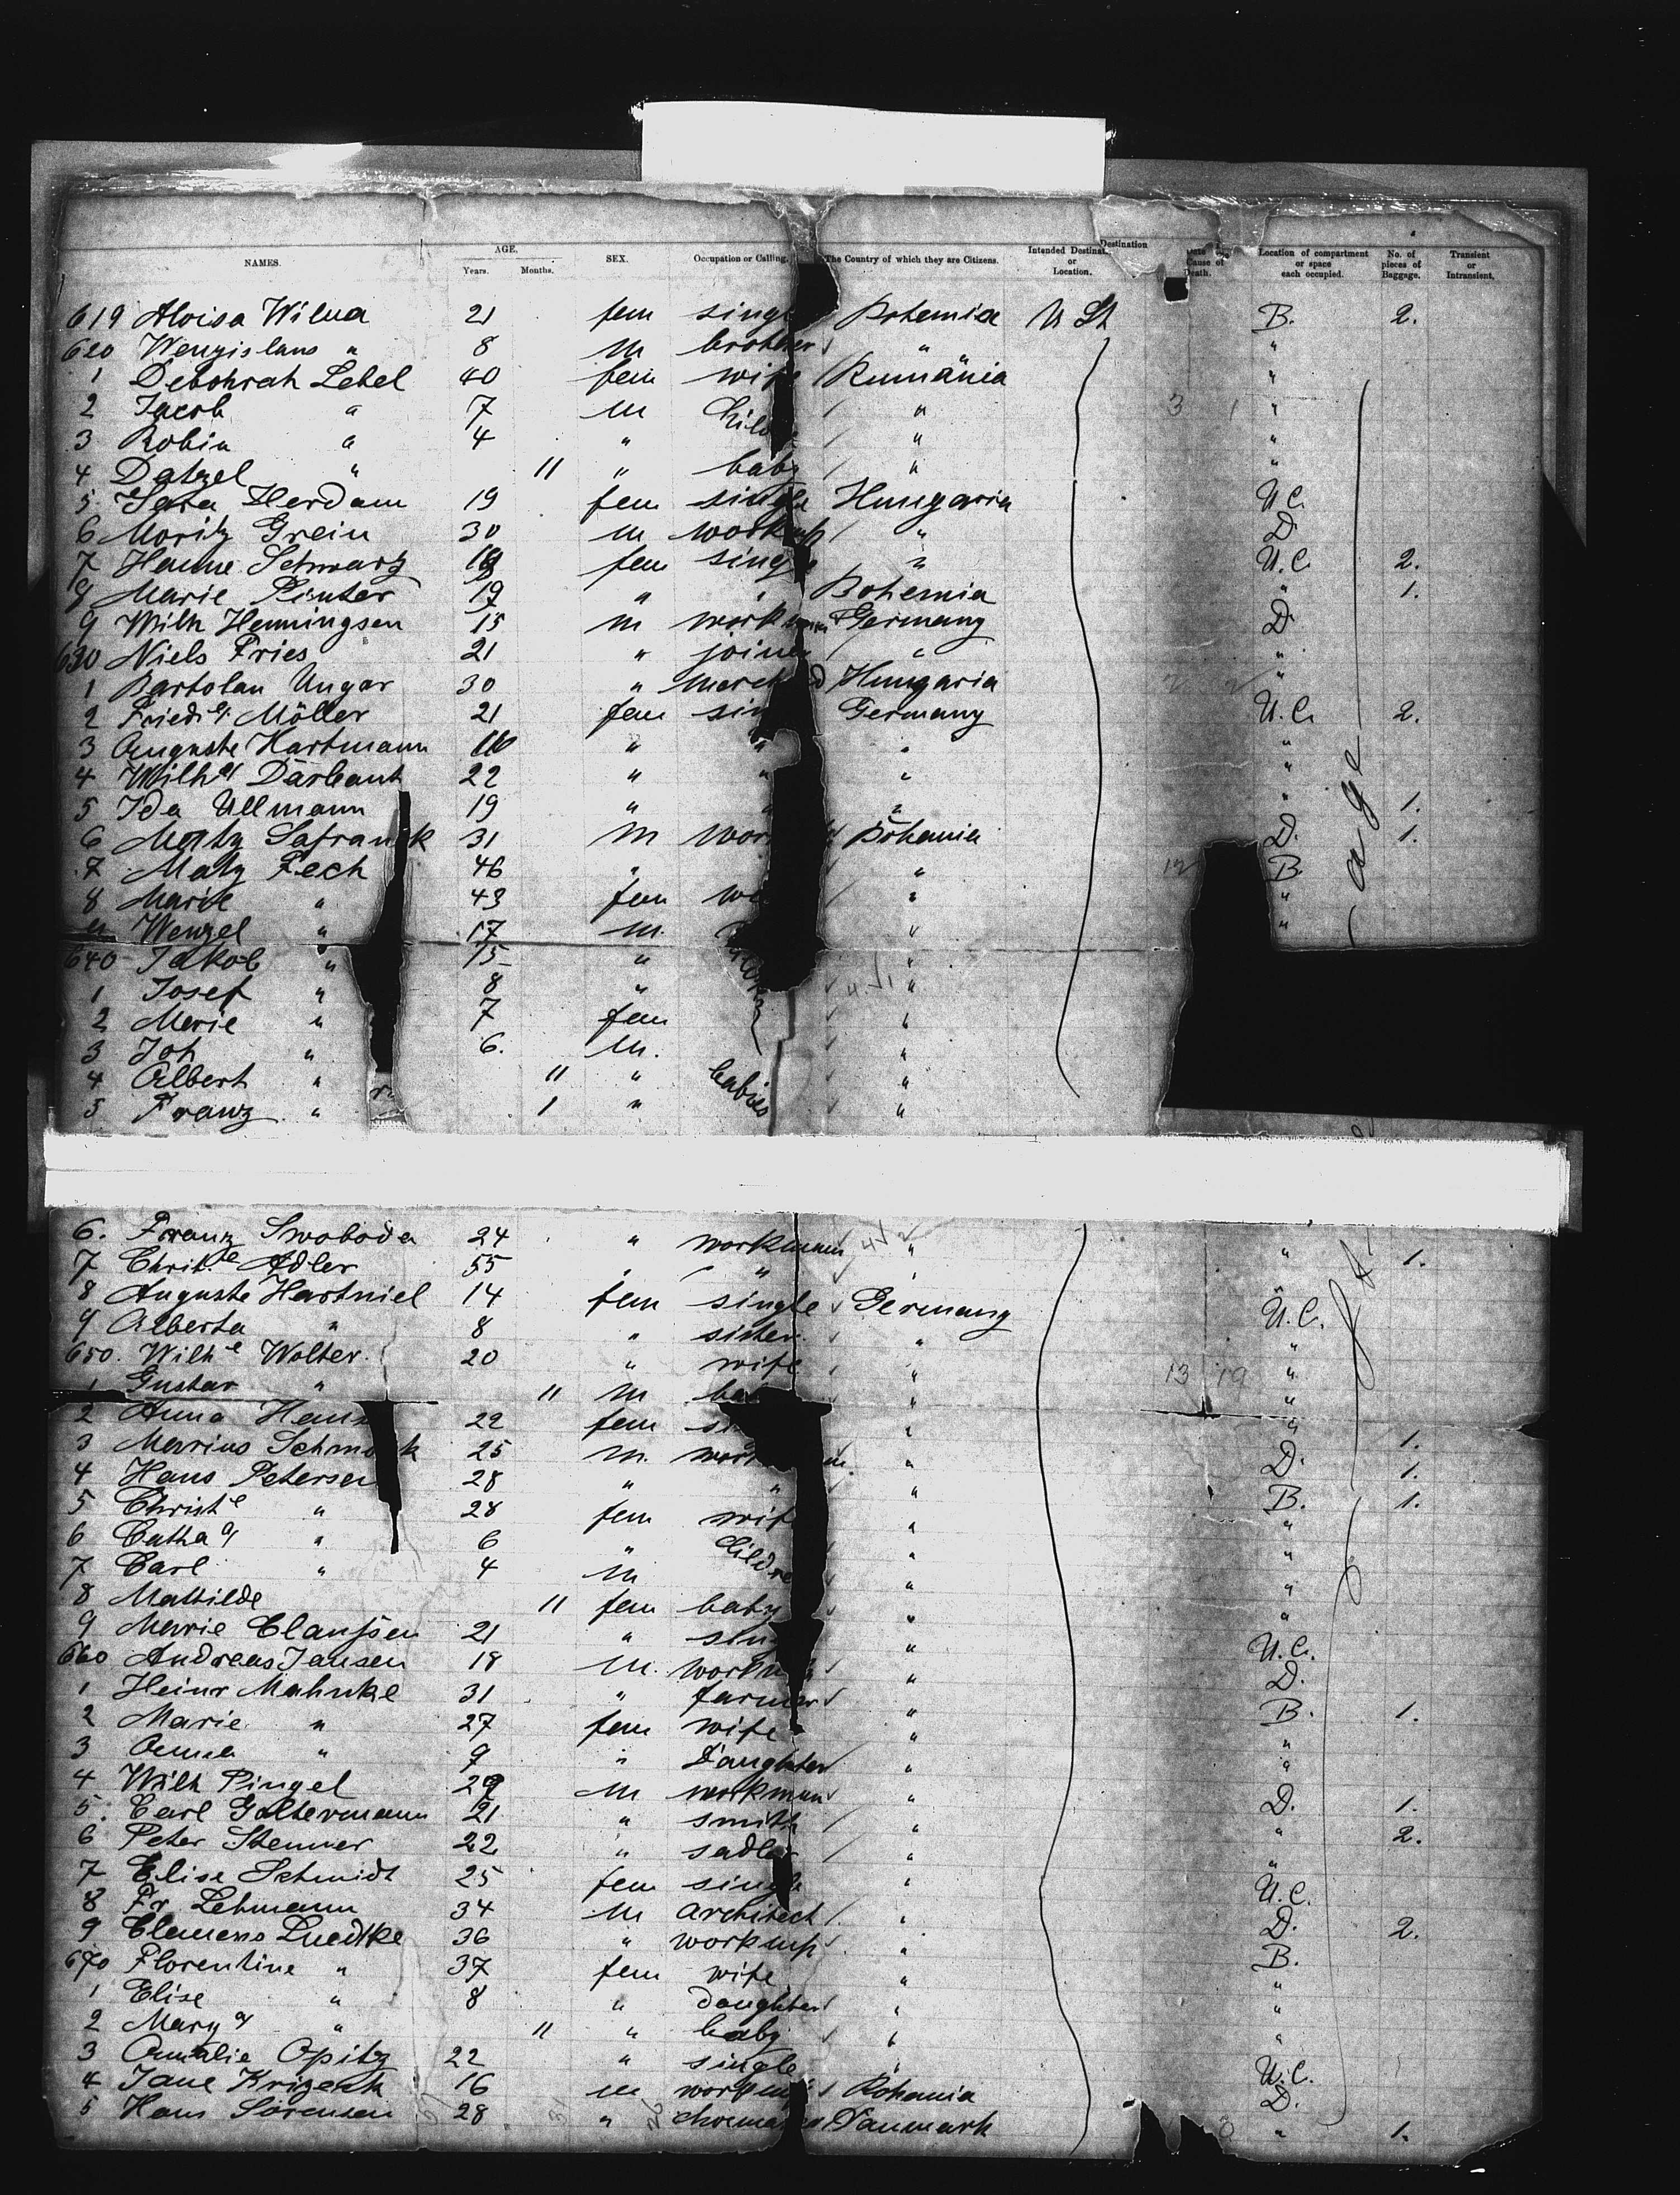 NAMES. AGE. Years. Months. SEX. Occupation or Calling. The Country of which they are Citizens. Intended Destinat or Location. Destination Cause of Death. Location of compartment or space each occupied. No. of pieces of Baggage. Transient or Intransient.
619 Aloisa Wilna 21 fem singl Bohemia U St B. 2.
620 Wenzislaus " 8 m brother " "
1 Debohrah Lebel 40 fem wife Rumänia "
2 Jacob " 7 m Child " 3 1 "
3 Robin " 4 " " "
4 Datzel " 11 " baby " "
5 Sara Herdam 19 fem single Hungaria U.C.
6 Moritz Grein 30 m workm " D.
7 Hanne Schwartz 18 fem singl " U.C. 2.
8 Marie Pinter 19 " " Bohemia " 1.
9 Wilh Henningsen 15 m workman Germany D.
630 Niels Fries 21 " joiner " "
1 Bartolan Ungar 30 " march Hungaria 2 "
2 Fried e/. Möller 21 fem sin Germany U.C. 2.
3 Auguste Hartmann 16 " " " "
4 Wilh e/ Därbant 22 " " " "
5 Ida Ullmann 19 " " " " 1.
6 Matz Safran k 31 m wor Bohemia D. 1.
7 Matz Pech 46 " " 12 B.
8 Marie " 43 fem w " "
9 Wenzel " 17 m. " "
640 Jakob " 15 " "
1 Josef " 8 " "
2 Marie " 7 fem "
3 Joh " 6. m. "
4 Albert " 11 " babies "
5 Franz " 1 " "
age
6. Franz Swoboda 24 " workmann " " 1.
7 Christ e Adler 55 " " "
8 Auguste Hartniel 14 fem single Germany U.C.
9 Alberta " 8 " sister " "
650. Wilh e Wolter 20 " wife " 13 19 "
1 Gustav " 11 m ba " "
2 Anna Hans 22 fem s " "
3 Marius Schm k 25 m. work " D. 1.
4 Hans Petersen 28 " " " 1.
5 Christ e " 28 fem wif " B. 1.
6 Catha e/ " 6 " Childre " "
7 Carl " 4 m " "
8 Mathilde 11 fem baby " "
9 Marie Claussen 21 " sin " U.C.
660 Andreas Jansen 18 m. workm " D.
1 Heinr Mahnke 31 " farmer " B. 1.
2 Marie " 27 fem wife " "
3 Anna " 9 " Daughter " "
4 Wilh Pingel 29 m workman " D. 1.
5. Carl Goltermann 21 " smith " " 2.
6 Peter Stenner 22 " sadler " "
7 Elise Schmidt 25 fem single " U.C.
8 Fr. Lehmann 34 m architect " D. 2.
9 Clemens Luedtke 36 " workmp " B.
670 Florentine " 37 fem wife " "
1 Elise " 8 " daughter " "
2 Mary e/ " 11 " baby " "
3 Amalie Opitz 22 " single " U.C.
4 Jane Krizeck 16 m workm Bohemia D.
5 Hans Sörensen 28 " Danmark 3 " 1.